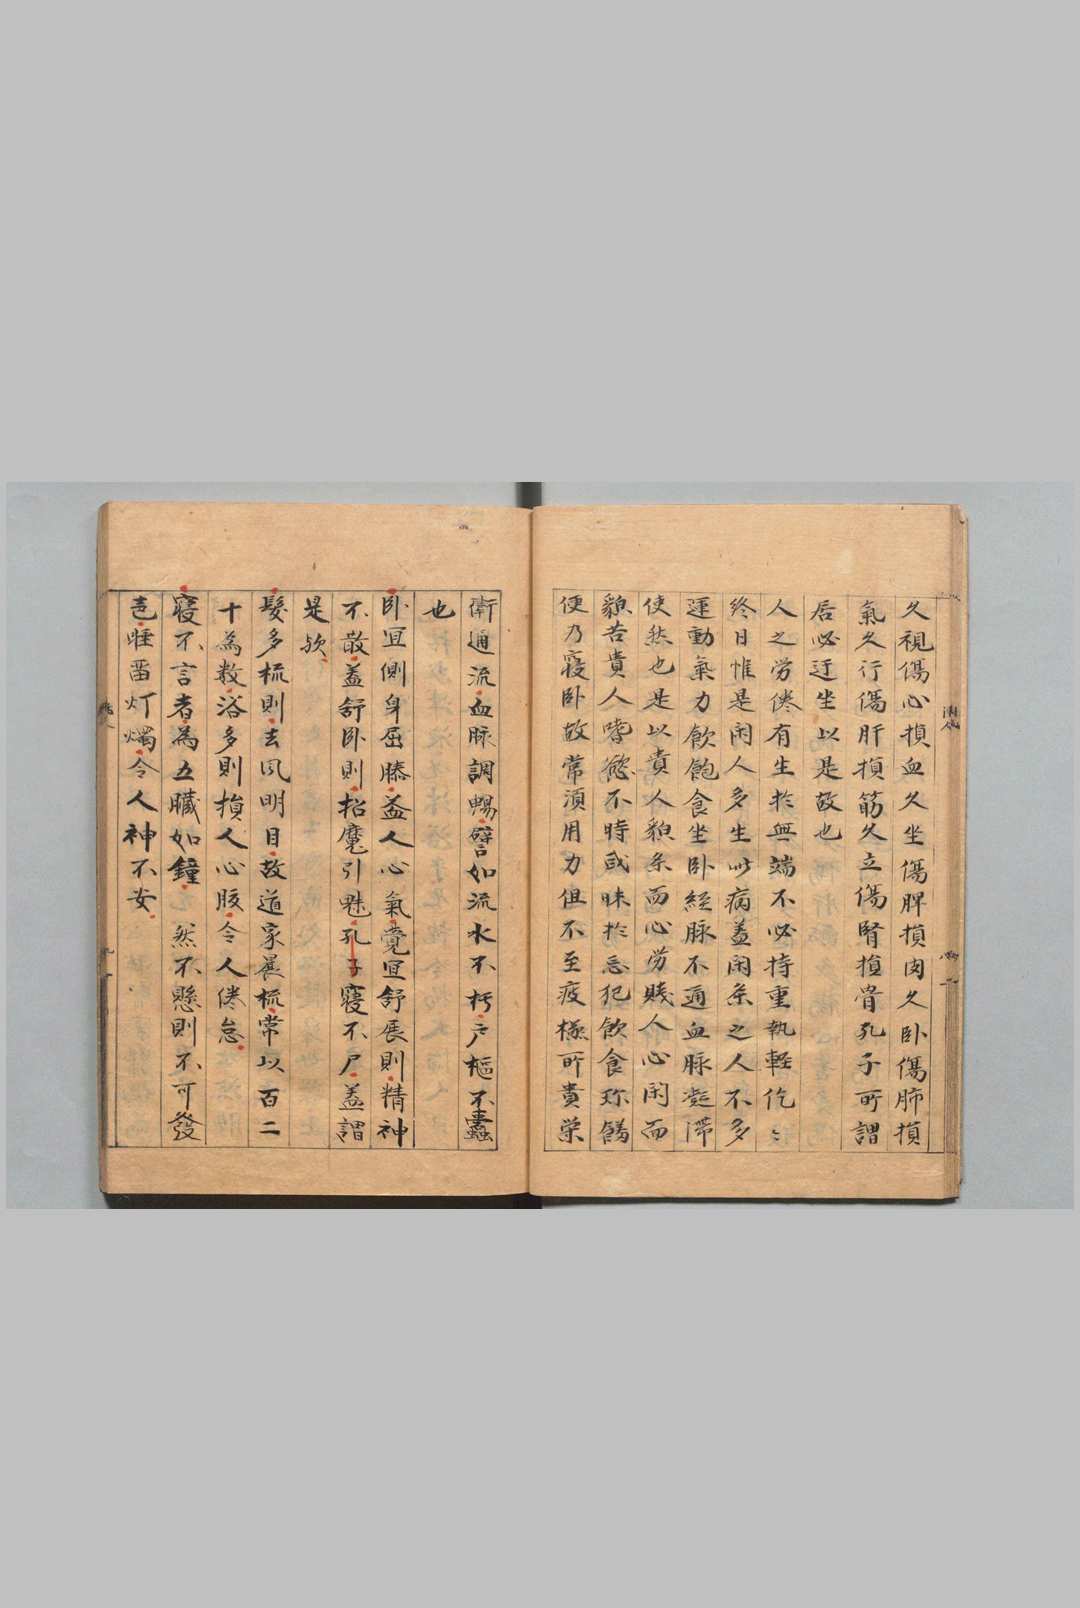 久視傷心損血久坐傷脾損肉久卧傷肺損
氣久行傷肝損筋久立傷腎損骨孔子所謂
居必迁坐以是故也
人之労倦有生於無端不必持重執軽仡〻
終日惟是闲人多生此病盖闲楽之人不多
運動氣力飲飽食坐卧経脉不通血脉凝滞
使然也是以貴人貌楽而心労賎人心闲而
貌苦貴人嗜慾不時或昧於忌犯飲食珎饈
便乃寝卧故常須用力但不至疲極所貴栄
衛通流血脉調暢譬如流水不朽户樞不蠹
也
卧宜側身屈膝益人心氣覺宜舒展則精神
不散盖舒卧則招魔引魅孔子寝不尸盖謂
是欤
髮多梳則去风明目故道家晨梳常以百二
十為数浴多則損人心胶令人倦怠
寝不言者為五臓如鐘然不懸則不可發
声睡畱灯燭令人神不安